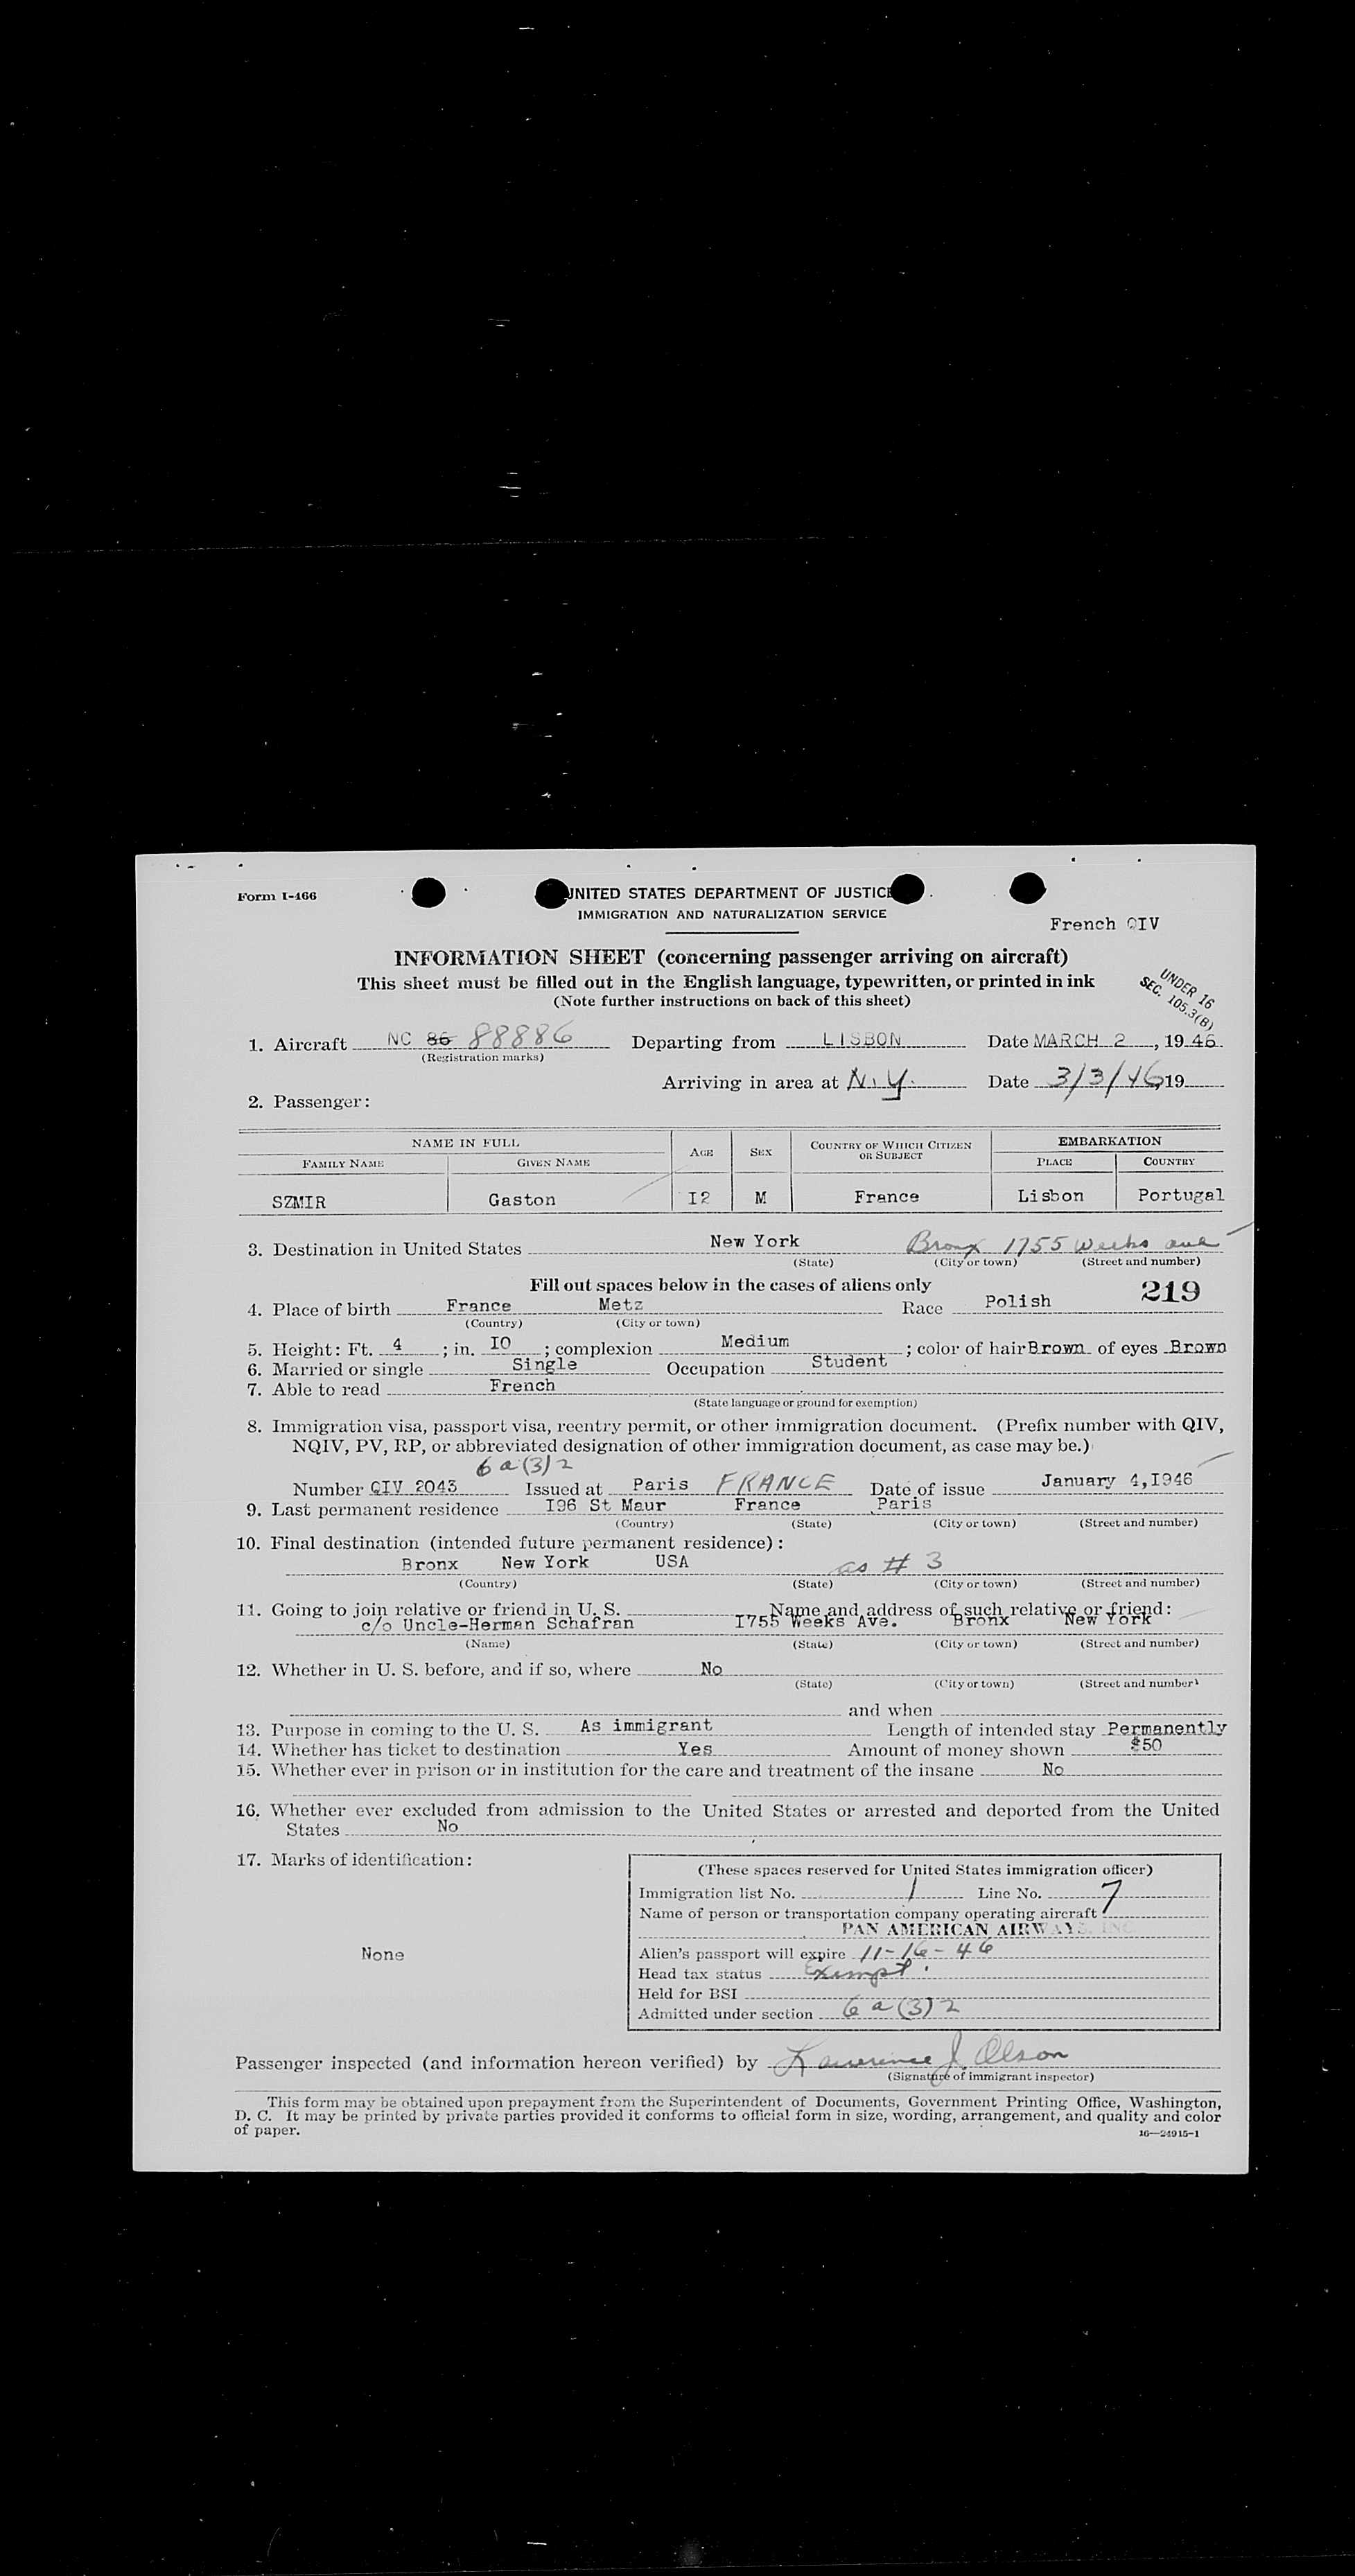 Form I-466
UNITED STATES DEPARTMENT OF JUSTICE
IMMIGRATION AND NATURALIZATION SERVICE
French QIV
INFORMATION SHEET (concerning passenger arriving on aircraft)
This sheet must be filled out in the English language, typewritten, or printed in ink
(Note further instructions on back of this sheet)
UNDER 16
SEC. 105.3(B)
1. Aircraft NC 86 88886 Departing from LISBON Date MARCH 2, 19 46
(Registration marks)
Arriving in area at N.Y. Date 3/3/46, 19
2. Passenger:
NAME IN FULL AGE SEX COUNTRY OF WHICH CITIZEN OR SUBJECT EMBARKATION
FAMILY NAME GIVEN NAME PLACE COUNTRY
SZMIR Gaston I2 M France Lisbon Portugal
3. Destination in United States New York Bronx 1755 Weeks ave
(State) (City or town) (Street and number)
Fill out spaces below in the cases of aliens only
219
4. Place of birth France Metz Race Polish
(Country) (City or town)
5. Height: Ft. 4 ; in. IO ; complexion Medium ; color of hair Brown of eyes Brown
6. Married or single Single Occupation Student
7. Able to read French
(State language or ground for exemption)
8. Immigration visa, passport visa, reentry permit, or other immigration document. (Prefix number with QIV,
NQIV, PV, RP, or abbreviated designation of other immigration document, as case may be.)
6a(3)2
Number QIV 2043 Issued at Paris FRANCE Date of issue January 4,I946
9. Last permanent residence I96 St Maur France Paris
(Country) (State) (City or town) (Street and number)
10. Final destination (intended future permanent residence):
Bronx New York USA as # 3
(Country) (State) (City or town) (Street and number)
11. Going to join relative or friend in U. S. Name and address of such relative or friend:
c/o Uncle-Herman Schafran I755 Weeks Ave. Bronx New York
(Name) (State) (City or town) (Street and number)
12. Whether in U. S. before, and if so, where No
(State) (City or town) (Street and number)
and when
13. Purpose in coming to the U. S. As immigrant Length of intended stay Permanently
14. Whether has ticket to destination Yes Amount of money shown $50
15. Whether ever in prison or in institution for the care and treatment of the insane No
16. Whether ever excluded from admission to the United States or arrested and deported from the United
States No
17. Marks of identification:
None
(These spaces reserved for United States immigration officer)
Immigration list No. 1 Line No. 7
Name of person or transportation company operating aircraft
PAN AMERICAN AIRWAYS, INC.
Alien's passport will expire 11-16-46
Head tax status Exempt.
Held for BSI
Admitted under section 6a(3)2
Passenger inspected (and information hereon verified) by Lawrence J. Olson
(Signature of immigrant inspector)
This form may be obtained upon prepayment from the Superintendent of Documents, Government Printing Office, Washington,
D. C. It may be printed by private parties provided it conforms to official form in size, wording, arrangement, and quality and color
of paper.
16—24915-1